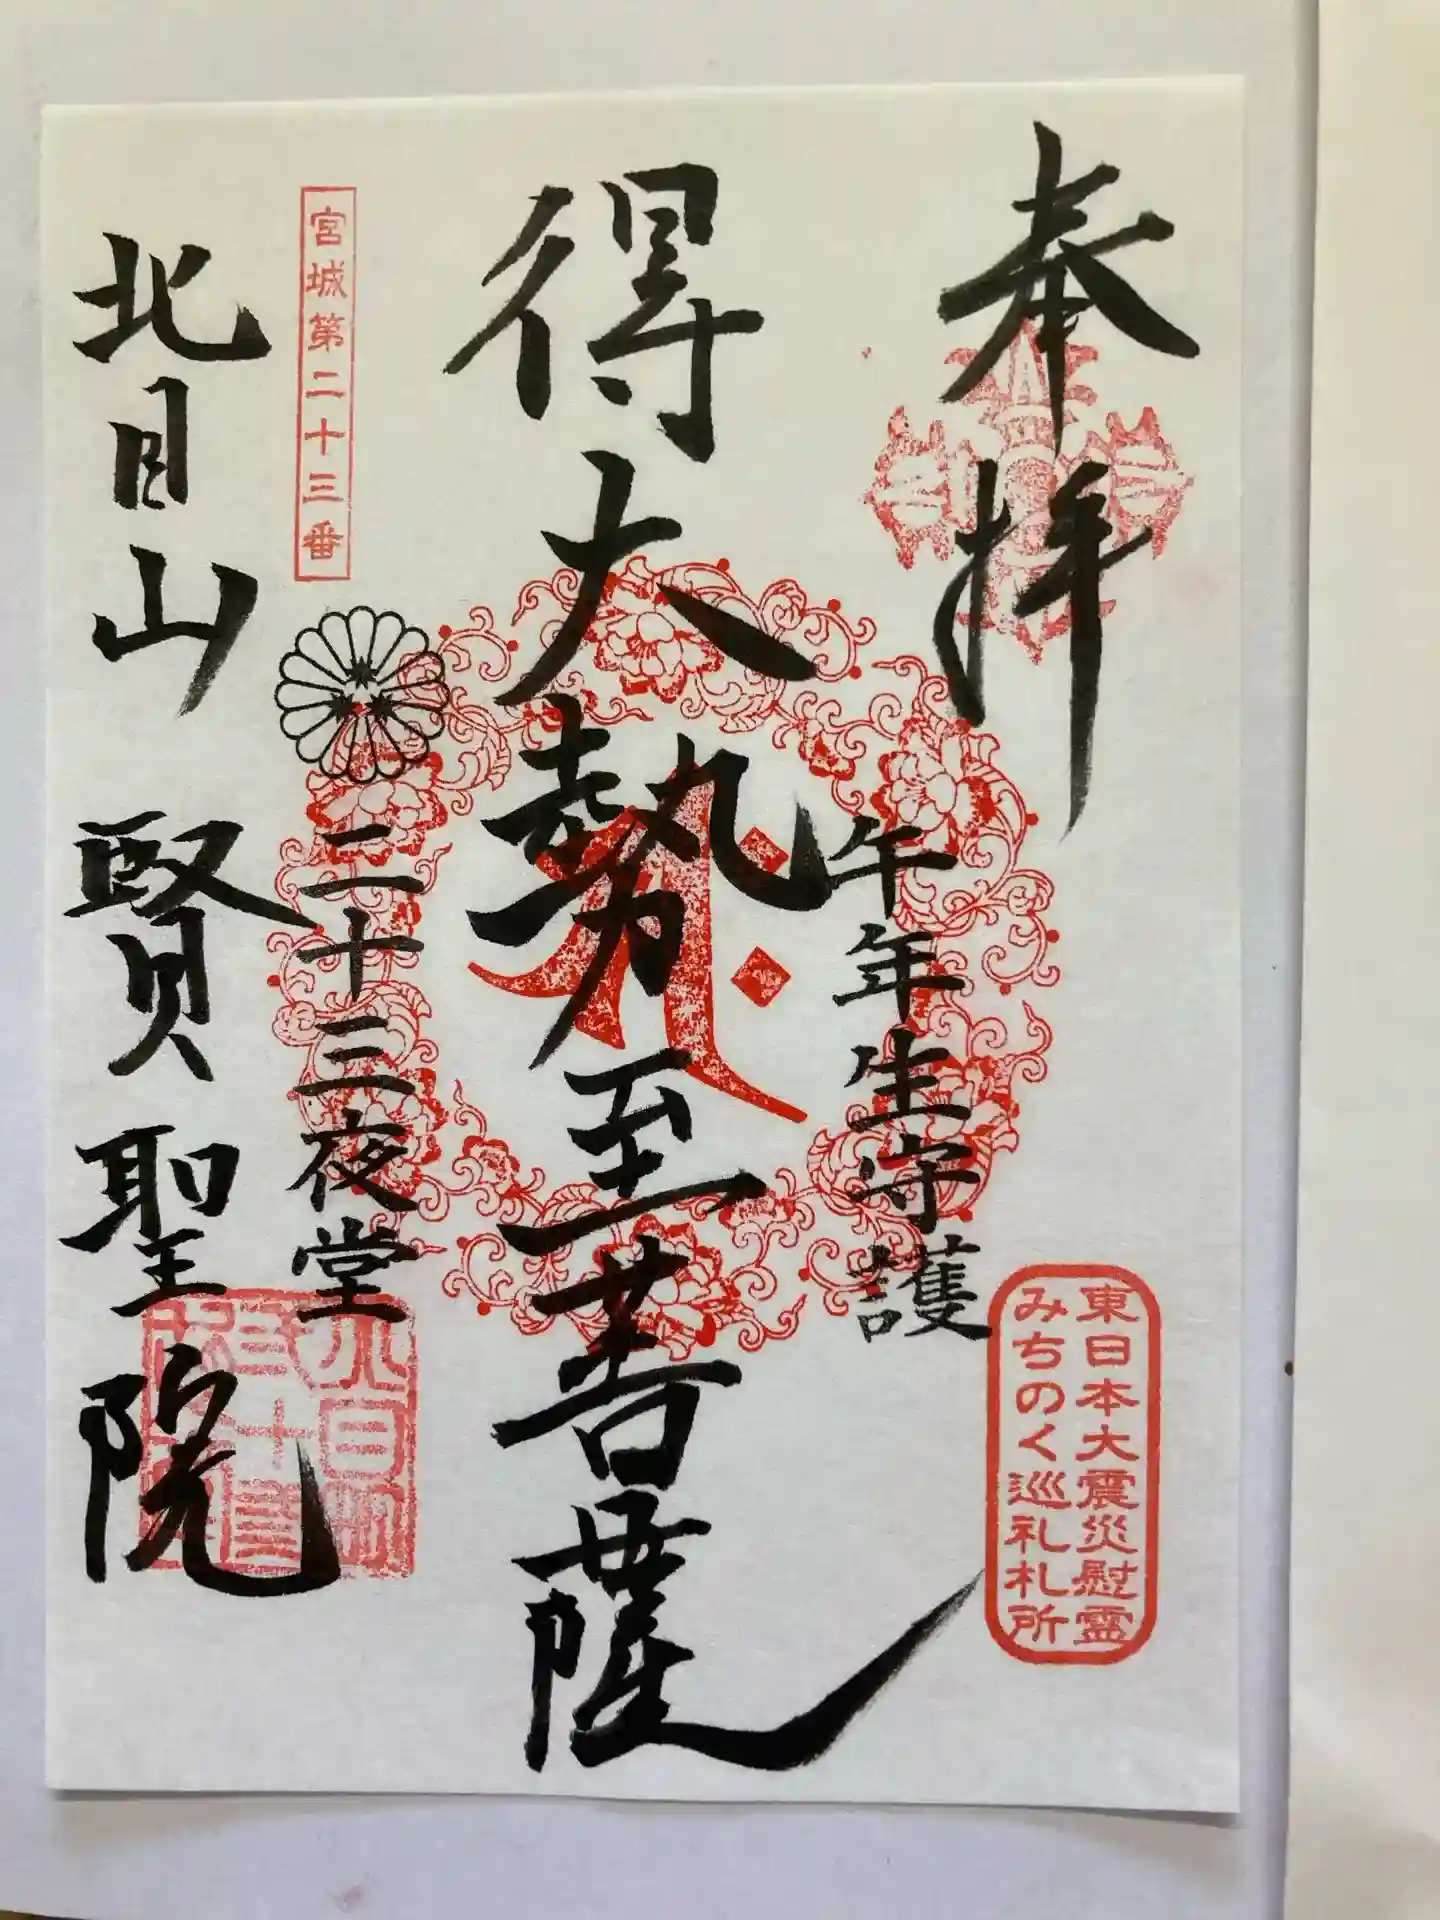 奉拝
午年生守護
東日本大震災慰霊
みちのく巡礼札所
得大勢至菩薩
宮城第二十三番
二十三夜堂
北目山 賢聖院